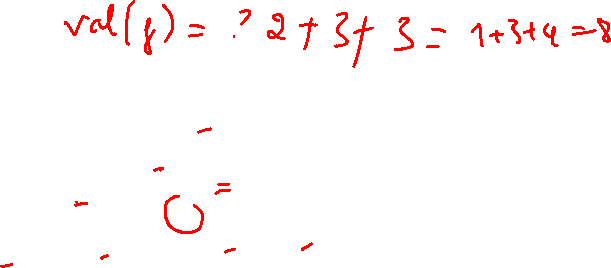 val(f) = ? 2 + 3 + 3 = 1+3+4=8